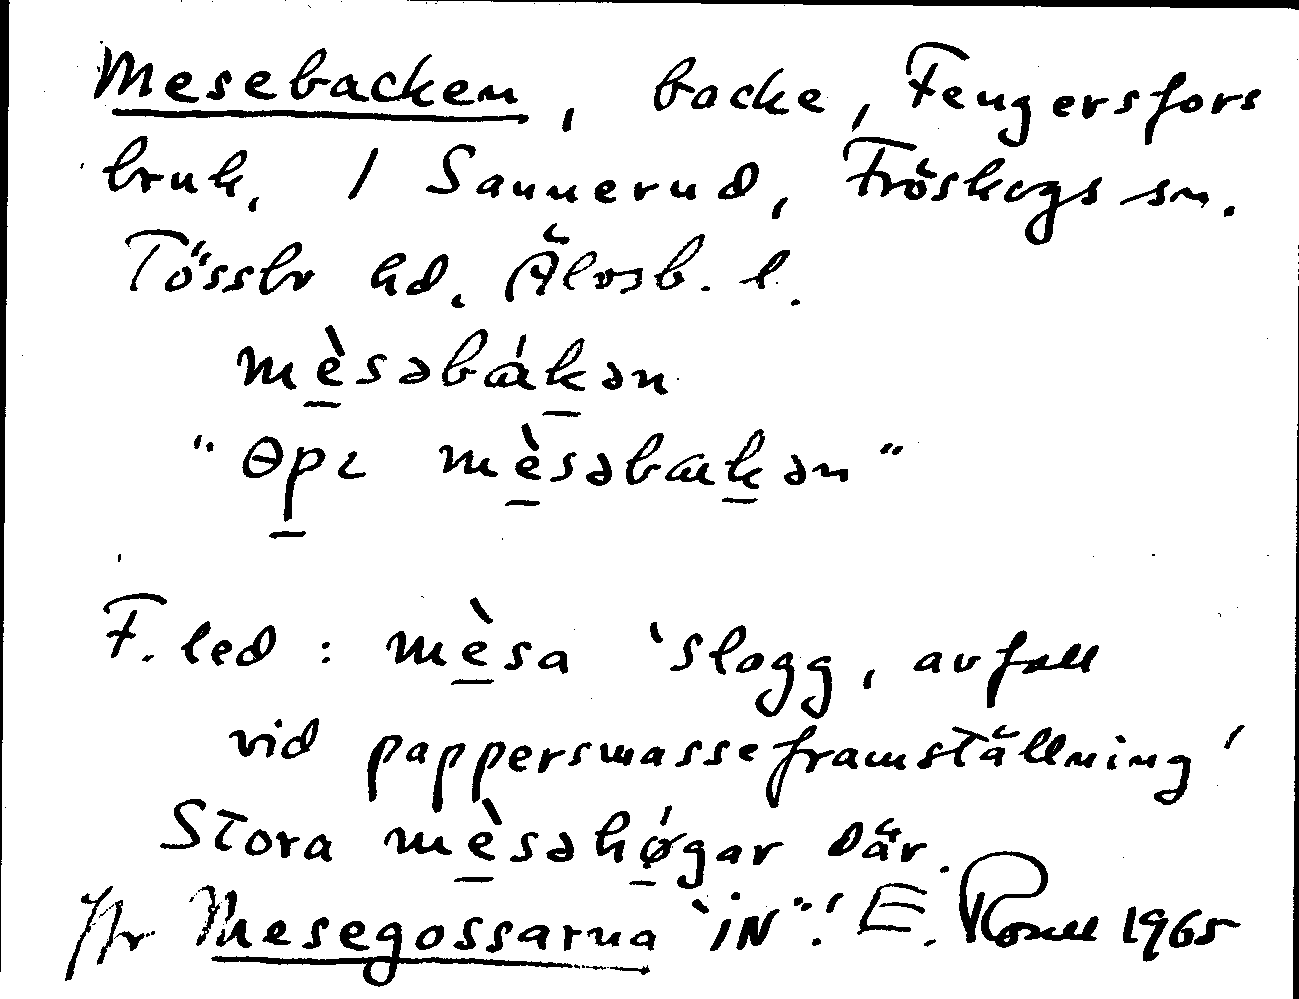 Mesebacken, backe, Fengersfors
bruk, / Sannerud, Fröskogs sn.
Tössbo hd. Älvsb. l.
mèsəbákən
"ɵpɩ mèsəbakən"
F. led : mèsa 'slagg, avfall
vid pappersmasseframställning'
Stora mèsəhǿgar där.
Jfr Mesegossarna 'IN"!
E. Rosell 1965